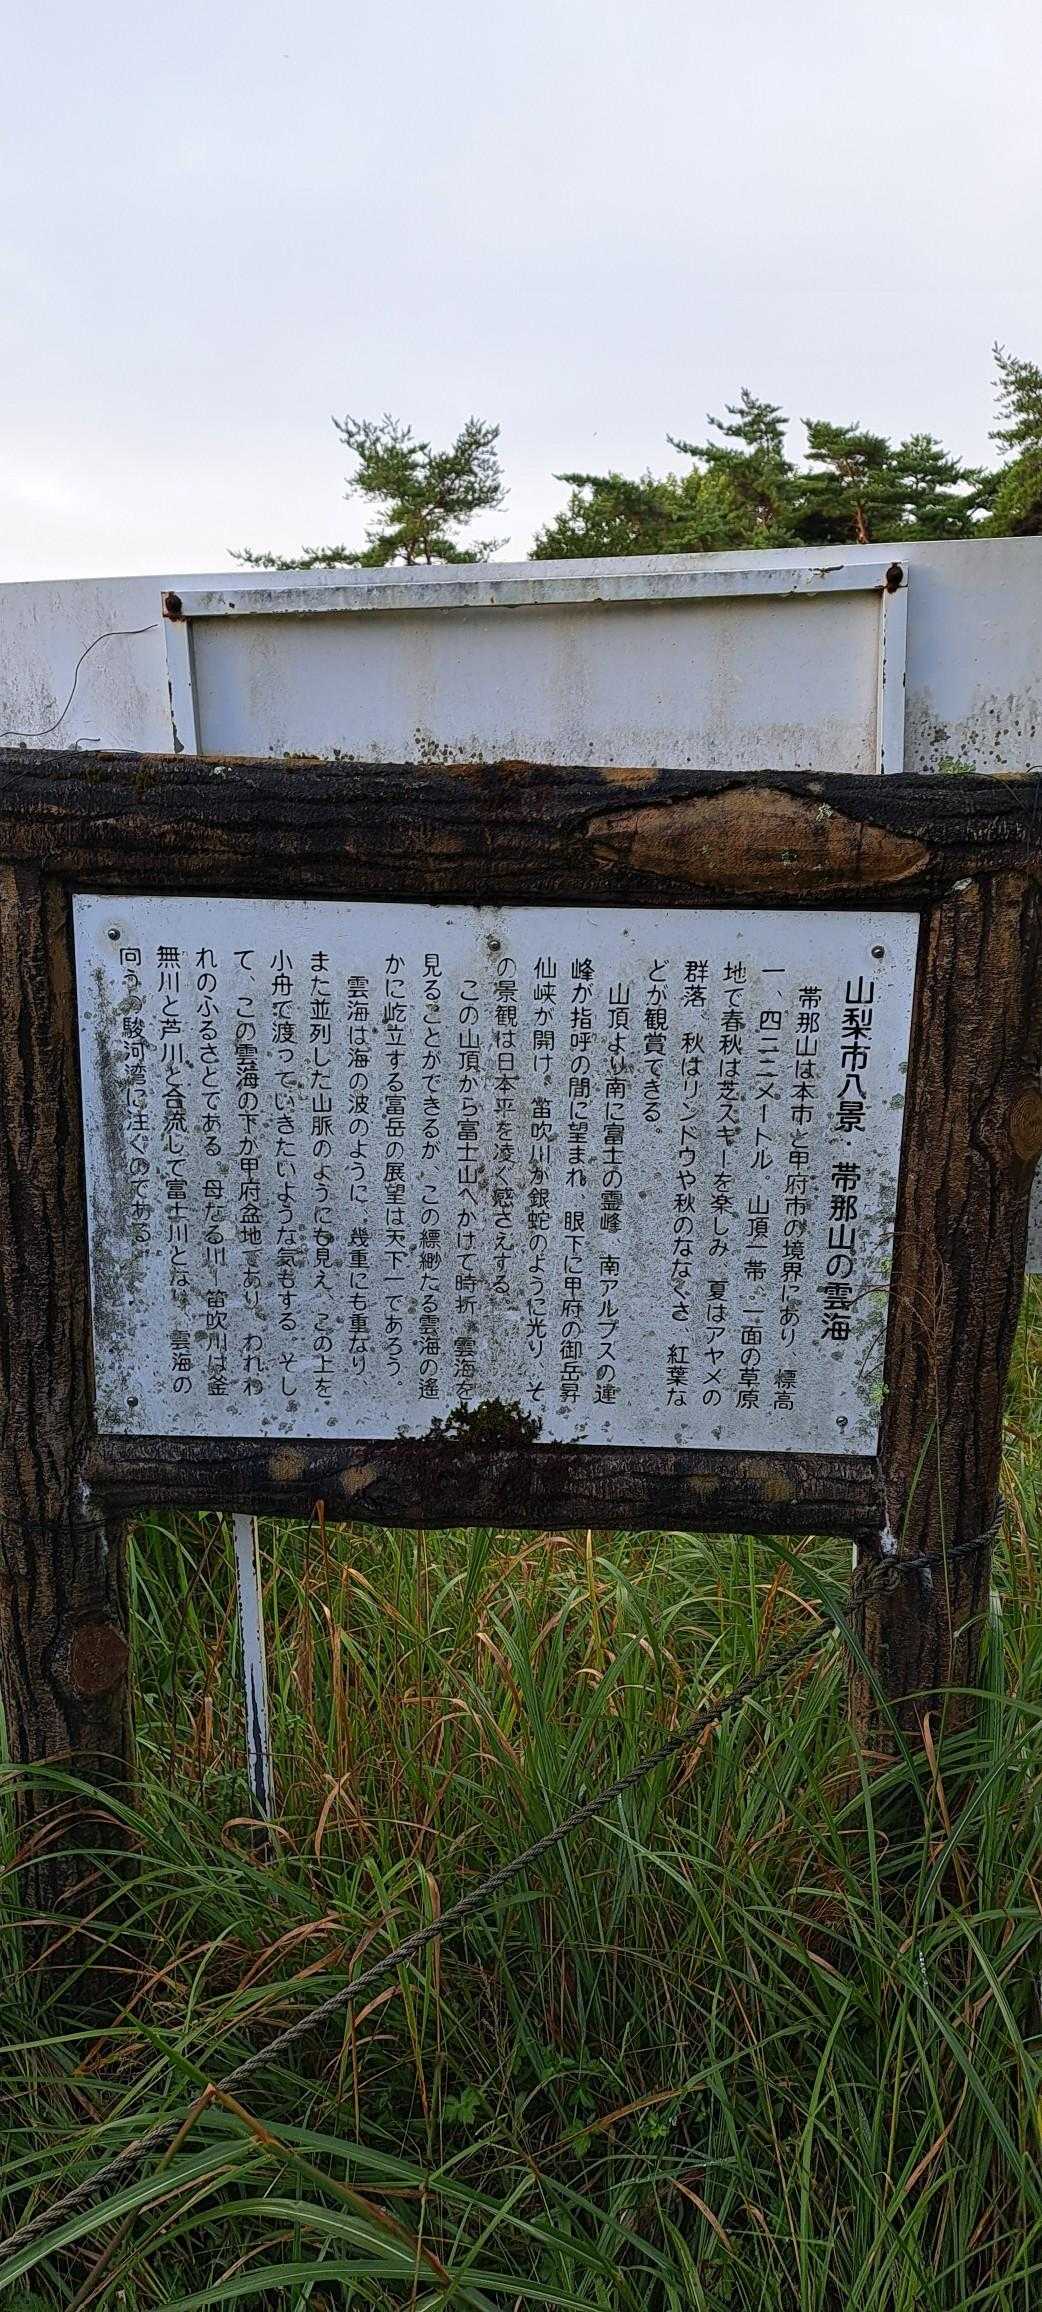 山梨市八景・帯那山の雲海
帯那山は本市と甲府市の境界にあり 標高
一、四二二メートル。山頂一帯、一面の草原
地で春秋は芝スキーを楽しみ、夏はアヤメの
群落、秋はリンドウや秋のななくさ、紅葉な
どが観賞できる。
山頂より南に富士の霊峰、南アルプスの連
峰が指呼の間に望まれ、眼下に甲府の御岳昇
仙峡が開け、笛吹川が銀蛇のように光り、そ
の景観は日本平を凌ぐ感さえする。
この山頂から富士山へかけて時折、雲海を
見ることができるが、この縹緲たる雲海の遙
かに屹立する富岳の展望は天下一であろう。
雲海は海の波のように、幾重にも重なり、
また並列した山脈のようにも見え、この上を
小舟で渡っていきたいような気もする。そし
て、この雲海の下が甲府盆地であり、われわ
れのふるさとである。母なる川―笛吹川は釜
無川と芦川と合流して富士川となり、雲海の
向うの駿河湾に注ぐのである。